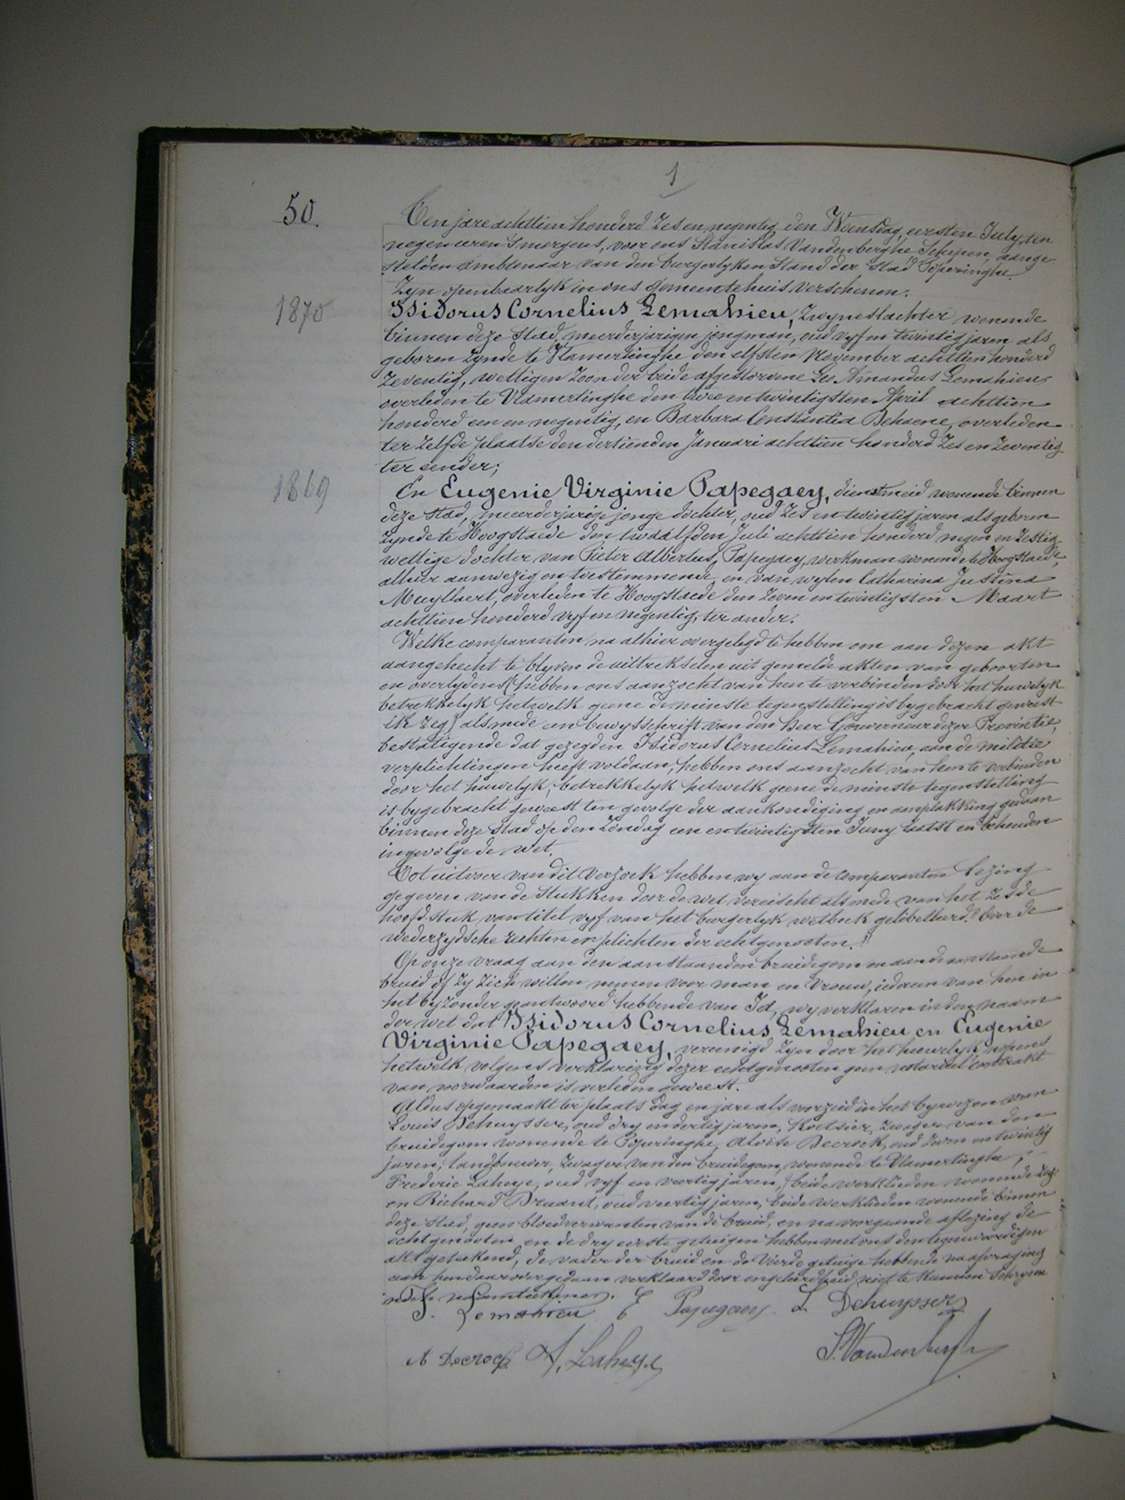 1
50.
Ten jare achttien honderd zes en negentig den Woensdag, eersten July, ten
negen uren 's morgens, voor ons Stanislas Vandenberghe Schepen, aange-
stelden Ambtenaar van den burgerlyken Stand der Stad Poperinghe.
Zyn openbaarlyk in ons gemeentehuis verschenen.
1870
Isidorus Cornelius Lemahieu, Zwyneslachter wonende
binnen deze Stad, meerderjarigen jongman, oud vyf en twintig jaren als
geboren zynde te Vlamertinghe den elfsten November achttien honderd
Zeventig, wettigen Zoon der beide afgestorvene Lés Amandus Lemahieu
overleden te Vlamertinghe den twee en twintigsten April achttien
honderd een en negentig, en Barbara Constantia Behaene, overleden
ter zelfde plaatse den dertienden Januari achttien honderd zes en zeventig
ter eender;
1869
En Eugenie Virginie Papegaey, dienstmeid wonende binnen
deze stad, meerderjarige jonge dochter, oud zes en twintig jaren als geboren
zynde te Hoogstaede den twaalfden Juli achttien honderd negen en zestig
wettige dochter van Pieter Albertus Papegaey, werkman wonende te Hoogstaede,
alhier aanwezig en toestemmende, en van wylen Catharina Justina
Muyllaert, overleden te Hoogstaede den zeven en twintigsten Maart
achttien honderd vyf en negentig, ter ander.
Welke comparanten na alhier overgelegd te hebben om aan dezen akt
aangehecht te blyven de uittrekselen uit gemelde akten van geboorten
en overlydens (hebben ons aanzocht van hen te verbinden door het huwelyk
betrekkelyk hetwelk geene de minste tegenstelling is bygebracht geweest
ik zeg) alsmede een bewysschrift van den Heer Gouverneur dezer Provintie,
bestatigende dat gezegden Isidorus Cornelius Lemahieu, aan de militie
verplichtingen heeft voldaan, hebben ons aanzocht van hen te verbinden
door het huwelyk, betrekkelyk hetwelk geene de minste tegenstelling
is bygebracht geweest ten gevolge der aankondiging en aanplakking gedaan
binnen deze stad op den Zondag een en twintigsten Juny laatst en behouden
ingevolge de wet.
Tot uitvoer van dit verzoek hebben wy aan de comparanten lezing
gegeven van de stukken door de wet vereischt alsmede van het zesde
hoofdstuk van titel vyf van het burgerlyk wetboek getiteld: Over de
wederzydsche rechten en plichten der echtgenooten.
Op onze vraag aan den aanstaanden bruidegom en aan de aanstaande
bruid of zy zich willen nemen voor man en vrouw, iedereen van hen in
het byzonder geantwoord hebbende van Ja, wy verklaren in den naam
der wet dat Isidorus Cornelius Lemahieu en Eugenie
Virginie Papegaey, vereenigd zyn door het huwelyk nopens
hetwelk volgens verklaring dezer echtgenooten geen notariael contrakt
van voorwaarden is verleden geweest.
Aldus opgemaakt ter plaats dag en jare als vorzeid in het bywezen van
Louis Dehuysser, oud dry en dertig jaren, Koetsier, zwager van den
bruidegom wonende te Poperinghe, Aloïse Decrock, oud zeven en twintig
jaren, landbouwer, zwager van den bruidegom, wonende te Vlamertinghe;
Frederic Lahaye, oud vyf en veertig jaren,
en Richard Druant, oud veertig jaren, beide werklieden wonende binnen
deze stad, geen bloedverwanten van de bruid, en na voorgaande aflezing de
echtgenooten en de dry eerste getuigen hebben met ons den tegenwoordigen
akt geteekend, de vader der bruid en de vierde getuige hebbende na afvraging
aan hen daarover gedaan verklaard door ongeleerdheid niet te kunnen schryven
noch naamteekenen.
Lemahieu E Papegaey L. Dehuysser
A Decrock F. Lahaye S. Vandenberghe